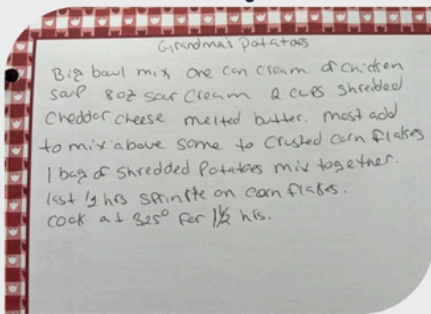 Grandma's Potatoes
Big bowl mix one can cream of chicken
soup 8oz sour cream 2 cups shredded
Cheddar cheese melted butter. most add
to mix above some to crushed corn flakes
1 bag of shredded Potatoes mix together.
last 1/2 hrs sprinkle on corn flakes.
cook at 325° for 1 1/2 hrs.